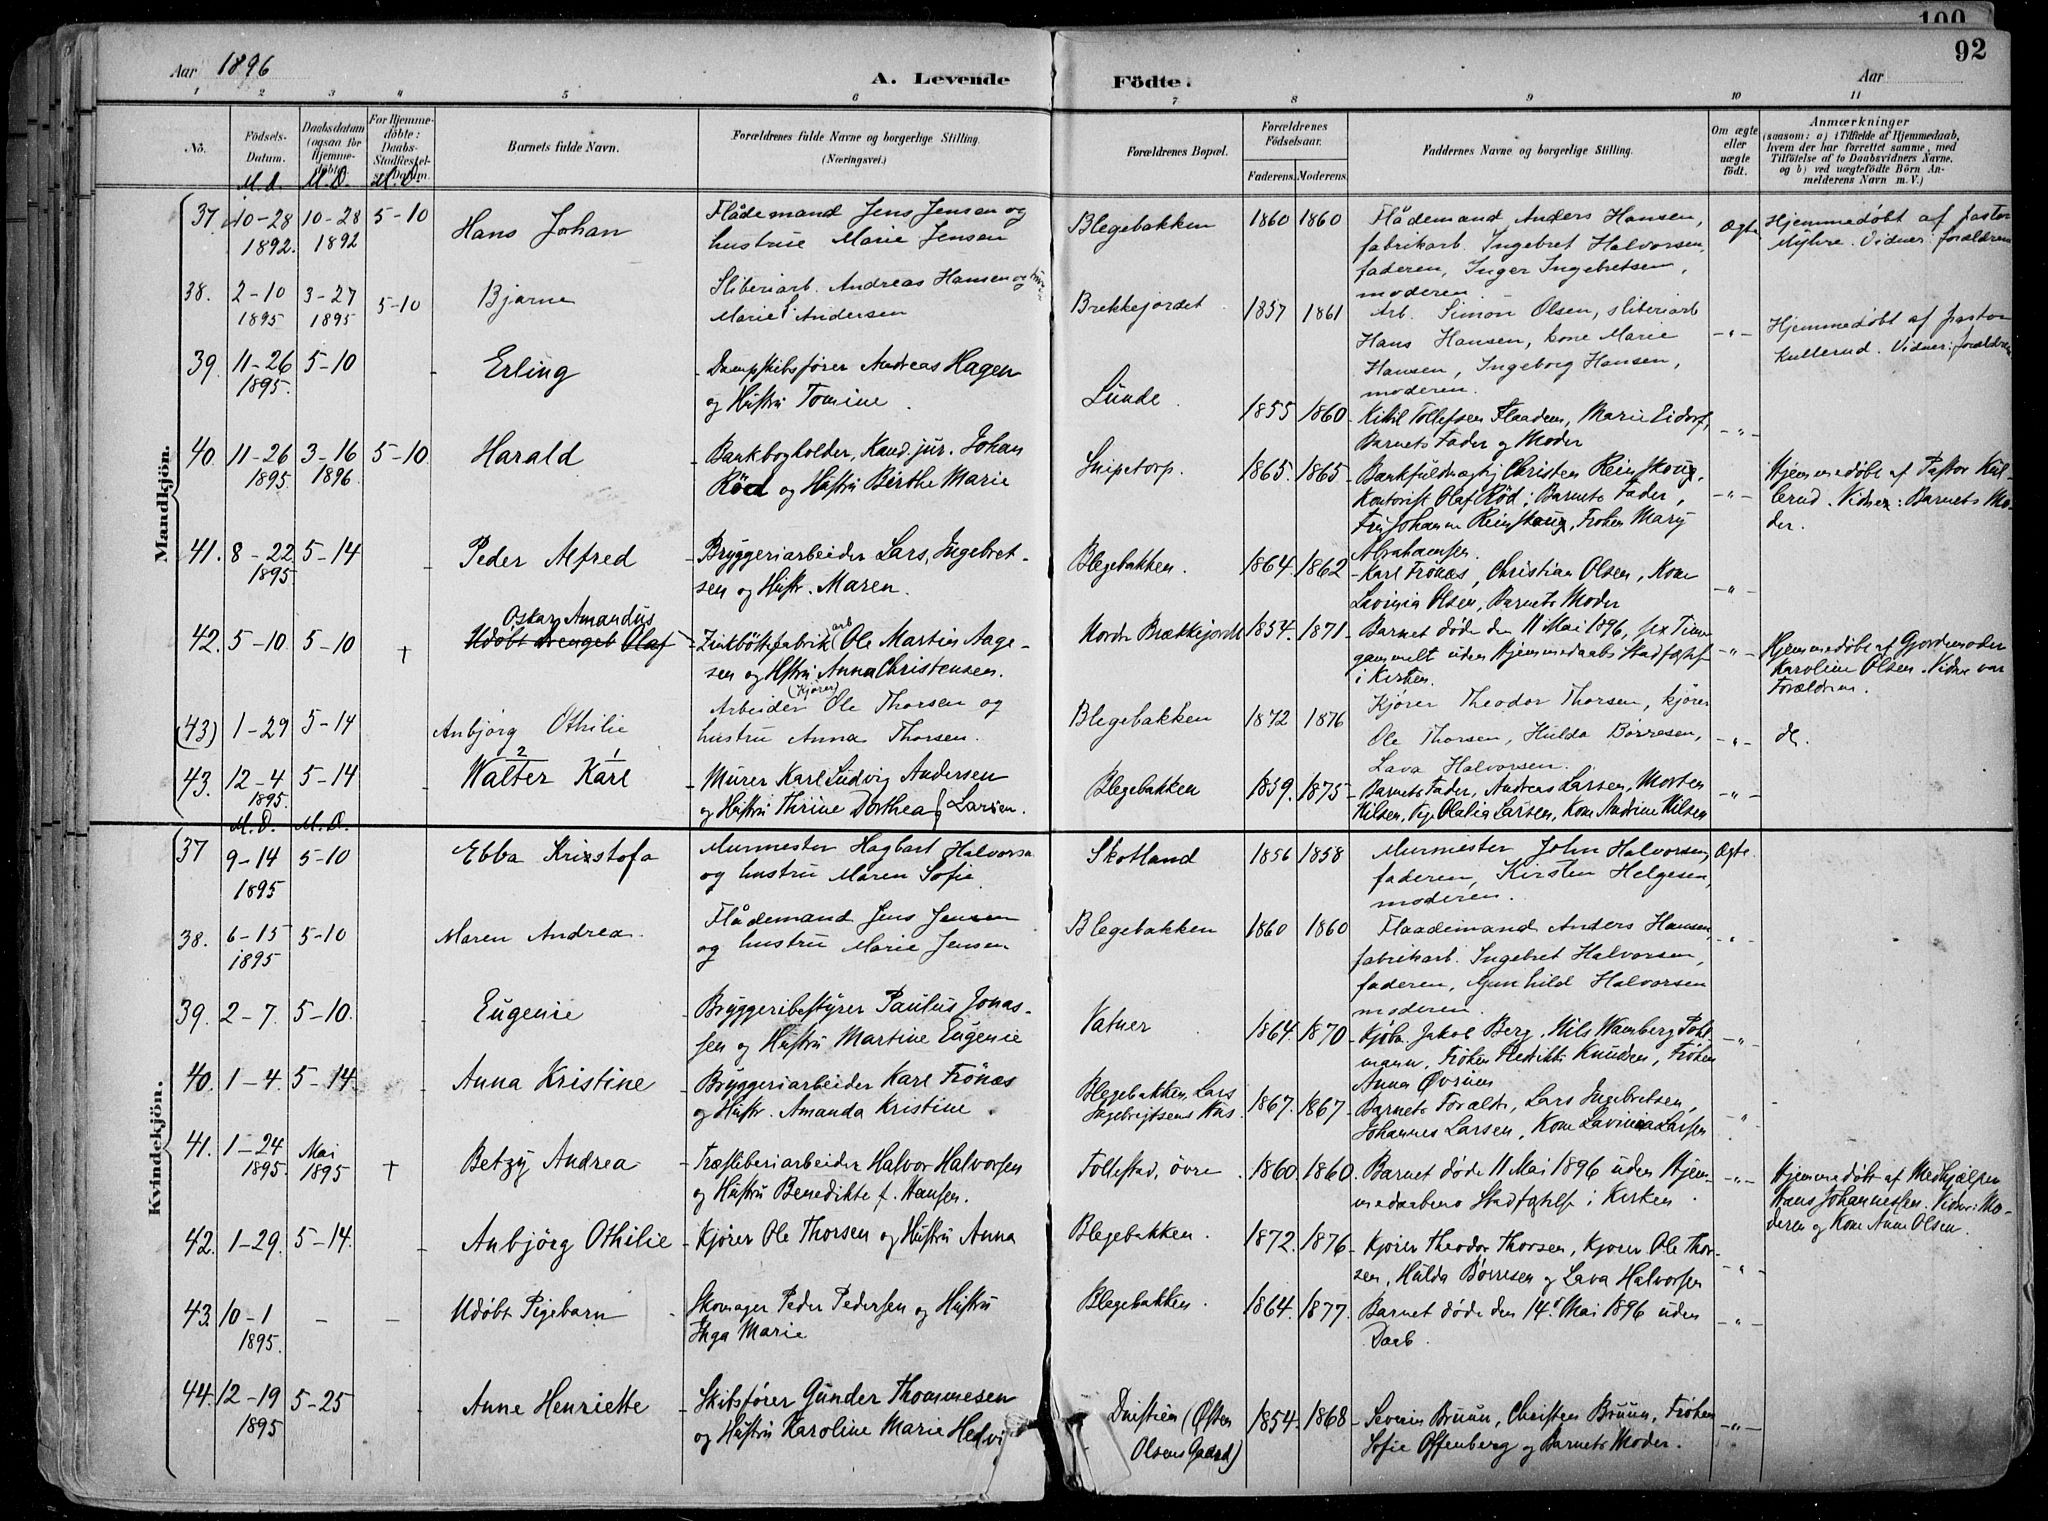 100
92
Aar 1896
A. Levende Födte.
Aar
1 2 3 4 5 6 7 8 9 10 11
No.
Födsels-Datum.
Daabsdatum (ogsaa for Hjemme-døbte).
For Hjemme-døbte: Daabs-Stadfæstel-ses-Datum.
Barnets fulde Navn.
Forældrenes fulde Navne og borgerlige Stilling.
(Næringsvei.)
Forældrenes Bopæl.
Forældrenes Födselsaar.
Faderens. Moderens.
Faddernes Navne og borgerlige Stilling.
Om ægte eller uægte födt.
Anmærkninger
(saasom: a) i Tilfælde af Hjemmedaab,
hvem der har forrettet samme, med
Tilföielse af to Daabsvidners Navne.
og b) ved uægtefödte Börn An-
melderens Navn m. V.)
M. D. M. D. M. D.
Mandkjön.
37. 10-28 1892. 10-28 1892 5-10
Hans Johan
Flådemand Jens Jensen og
hustrue Marie Jensen
Blegebakken 1860 1860
Flådemand Anders Hansen,
fabrikarb. Ingebret Halvorsen,
faderen, Inger Ingebretsen,
moderen.
Ægte
Hjemmedøbt af pastor
Myhre. Vidner: forældrene
38. 2-10 1895 3-27 1895 5-10
Bjarne
Sliberiarb. Andreas Hansen og
Marie Andersen
Brekkejordet 1857 1861
Arb. Simon Olsen, sliberiarb
Hans Hansen, kone Marie
Hansen, Ingeborg Hansen,
moderen.
-"-
Hjemmedøbt af pastor
Kullerud. Vidner: forældrene
39. 11-26 1895. 5-10
Erling
Dampskibsfører Andreas Hagen
og Hustru Tomine.
Lunde. 1855 1860
Kittil Tollefsen Flaadem, Marie Eidorf,
Barnets Fader og Moder
-"-
40. 11-26 1895. 3-16 1896. 5-10
Harald
Bankbogholder, Kand. jur. Johan
Röd og Hustru Birthe Marie
Snipetorp. 1865. 1865
Bankfuldmægtig Christen Reinskoug,
Kontorist Olaf Rød, Barnets Fader,
Fru Johanne Reinskoug, Frøken Mary
Abrahamsen
-"-
Hjemmedøbt af Pastor Kul-
lerud. Vidner: Barnets Mo-
der.
41. 8-22 1895 5-14
Peder Alfred
Bryggeriarbeider Lars Ingebret-
sen og Hustr. Maren.
Blegebakken. 1864. 1862
Karl Frönæs, Christian Olsen, Kone
Lavinia Olsen, Barnets Moder
-"-
42. 5-10 5-10 †
Oskar Amandus
Udöbt Drenget Olaf
Zinkböttefabrikarb Ole Martin Aage-
sen og Hstru Anna Christensen.
Nordre Brækkejordet 1854. 1871
Barnet døde den 11 Mai 1896, sex Timer
gammelt uden Hjemmedaabs Stadfæstelse
i Kirken.
-"-
Hjemmedøbt af Gjordemoder
Karoline Olsen. Vidner var
Forældrene.
(43) 1-29 5-14
Anbjørg Othilie
(Kjører)
Arbeider Ole Thorsen og
hustru Anna Thorsen.
Blegebakken 1872 1876
Kjører Theodor Thorsen, kjører
Ole Thorsen, Hulda Børresen,
Lava Halvorsen.
-"-
43. 12-4 1895. 5-14
2 1
Walter Karl
Murer Karl Ludvig Andersen
og Hustru Thrine Dorthea f. Larsen.
Blegebakken 1859. 1875
Barnets Fader, Andreas Larsen, Morten
Nilsen, Pige Olalia Larsen, Kone Andrine Nilsen
-"-
M. D. M. D.
Kvindekjön.
37 9-14 1895 5-10
Ebba Kristofa
Murmester Hagbart Halvorsen
og hustru Maren Sofie.
Skotland 1856 1858
Murmester John Halvorsen,
faderen, Kirsten Helgesen,
moderen.
Ægte.
38. 6-15 1895 5-10
Maren Andrea.
Flådemand Jens Jensen
og hustru Marie Jensen
Blegebakken 1860 1860
Flaademand Anders Hansen,
fabrikarb. Ingebret Halvorsen,
faderen, Gunhild Halvorsen
moderen.
-"-
39. 2-7. 5-10.
Eugenie
Bryggeribestyrer Paulus Jonas-
sen og Hustru Martine Eugenie
Vatner 1864. 1870
Kjøbm. Jakob Berg, Nils Wamberg Pohl-
mann, Frøken Hedikte Knudsen, Frøken
Anna Øvrum
-"-
40. 1-4. 5-14.
Anna Kristine
Bryggeriarbeider Karl Frönæs
og Hustr. Amanda Kristine.
Blegebakken, Lars
Ingebrigtsens Hus. 1867. 1867
Barnets Foraldre, Lars Ingebretsen,
Johannes Larsen, Kone Lavinia Larsen
-"-
41. 1-24 1895. Mai 1895 †
Betzy Andrea
Træsliberiarbeider Halvor Halvorsen
og Hustru Benedikte f. Hansen.
Follestad, øvre. 1860. 1860
Barnet døde 11 Mai 1896 uden Hjem-
medaabens Stadfæstelse i Kirken.
-"-
Hjemmedøbt af Medhjælper
Hans Johannessen. Vidner: Mo-
deren og Kone Anne Olsen.
42. 1-29. 5-14.
Anbjörg Othilie
Kjører Ole Thorsen og Hustru Anna
Blegebakken. 1872. 1876
Kjører Theodor Thorsen, Kjører Ole Thor-
sen, Hulda Børresen og Lava Halvorsen
-"-
43. 10-1 1895. - -
Udöbt Pigebarn
Skomager Peder Pedersen og Hustru
Inga Marie
Blegebakken. 1864. 1877.
Barnet døde den 14de Mai 1896 uden
Daab.
-"-
44. 12-19 1895 5-25
Anne Henriette
Skibsfører Gunder Thommesen
og Hustru Karoline Marie Hedvi
Dristien (Østen
Olsens Gaard) 1854. 1868
Severin Bruun, Christen Bruun, Frøken
Sofie Offenberg og Barnets Moder.
-"-